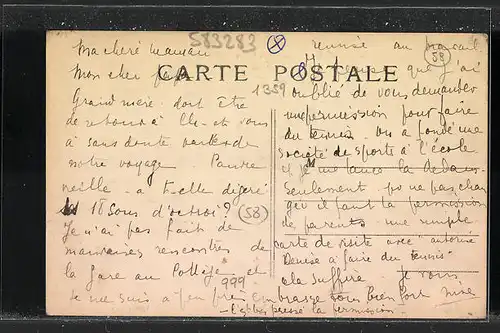 583283
Ma chère maman
Mon cher papa
CARTE POSTALE
1359
58
Grand'mère doit être
de retour à et vous
a sans doute parlé de
notre voyage. Pauvre
vieille a t-elle digéré
les 18 sous d'octroi ?
58
Je n'ai pas fait de
mauvaises rencontres de
la gare au Collège et
je me suis
999
remise au travail.
Je pense que j'ai
oublié de vous demander
une permission pour faire
du tennis. On a fondé une
société de sports à l'école
et je me lance là dedans.
Seulement
il faut la permission
de parents. une simple
carte de visite avec autorise
Denise à faire du tennis
et ça suffira. Je vous
embrasse tous bien fort
la permission.